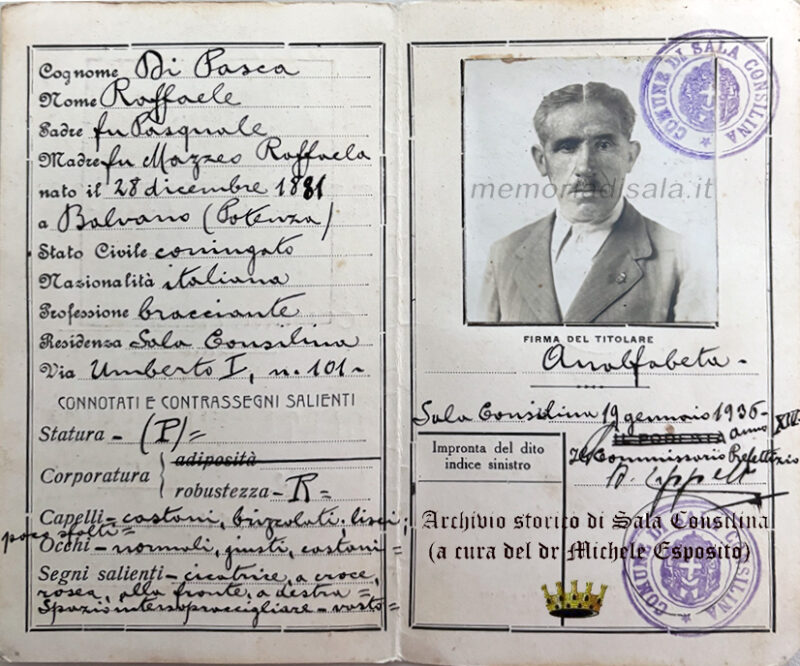 Cognome Di Pasca
Nome Raffaele
Padre fu Pasquale
Madre fu Mazzeo Raffaela
nato il 28 dicembre 1881
a Balvano (Potenza)
Stato Civile coniugato
Nazionalità italiana
Professione bracciante
Residenza Sala Consilina
Via Umberto I, n. 101-
CONNOTATI E CONTRASSEGNI SALIENTI
Statura - (P) =
Corporatura
adiposità
robustezza - R =
Capelli - castani, brizzolati, lisci,
poco folti =
Occhi - normali, giusti, castani =
Segni salienti - cicatrice, a croce,
rosea, alla fronte, a destra =
Spazio intersopraccigliare - vasto =
COMUNE DI SALA CONSILINA
memoriadisala.it
FIRMA DEL TITOLARE
Analfabeta -
Sala Consilina 19 gennaio 1936 -
anno XIV
IL PODESTÀ
Il Commissario Prefettizio
Impronta del dito
indice sinistro
Archivio storico di Sala Consilina
(a cura del dr Michele Esposito)
COMUNE DI SALA CONSILINA